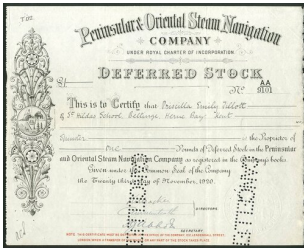 Peninsular & Oriental Steam Navigation
COMPANY
UNDER ROYAL CHARTER OF INCORPORATION
DEFERRED STOCK
£1
No AA
9101
This is to Certify that Priscilla Emily
of St Hildas School, Beltinge, Herne Bay, Kent
Spinster is the Proprietor of
One Pounds of Deferred Stock in the Peninsular
and Oriental Steam Navigation Company as registered in the Company's books.
Given under the Common Seal of the Company
The Twenty third day of November, 1920.